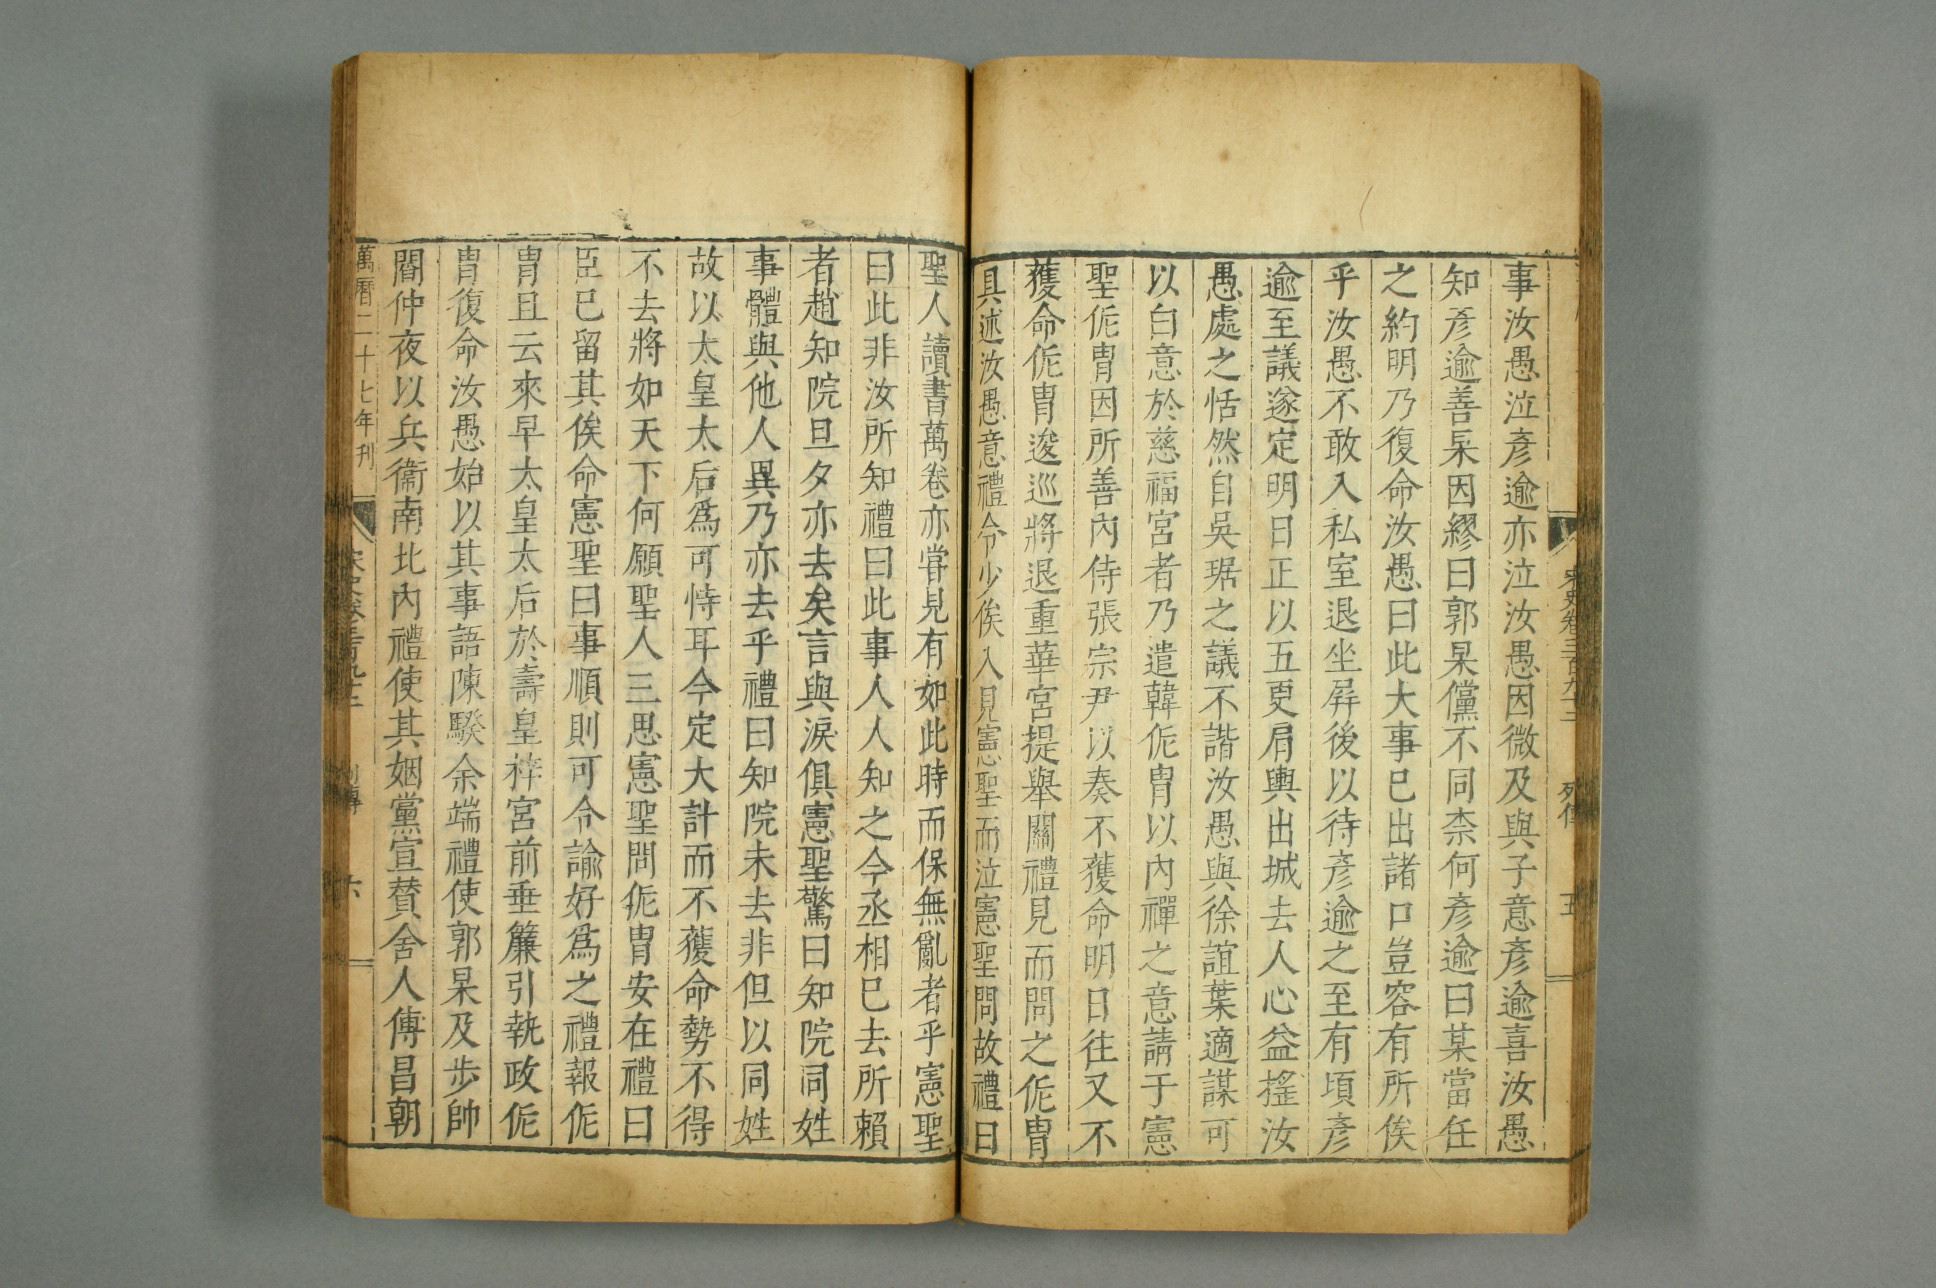 宋史卷三百九十二
列傳
五
事汝愚泣彥逾亦泣汝愚因微及與子意彥逾喜汝愚
知彥逾善杲因繆曰郭杲儻不同柰何彥逾曰某當任
之約明乃復命汝愚曰此大事已出諸口豈容有所俟
乎汝愚不敢入私室退坐屛後以待彥逾之至有頃彥
逾至議遂定明日正以五更肩輿出城去人心益搖汝
愚處之恬然自吳琚之議不諧汝愚與徐誼葉適謀可
以白意於慈福宮者乃遣韓侂冑以內禪之意請于憲
聖侂冑因所善內侍張宗尹以奏不獲命明日往又不
獲命侂冑逡巡將退重華宮提舉關禮見而問之侂冑
具述汝愚意禮令少俟入見憲聖而泣憲聖問故禮曰
聖人讀書萬卷亦嘗見有如此時而保無亂者乎憲聖
曰此非汝所知禮曰此事人人知之今丞相已去所賴
者趙知院旦夕亦去矣言與淚俱憲聖驚曰知院同姓
事體與他人異乃亦去乎禮曰知院未去非但以同姓
故以太皇太后爲可恃耳今定大計而不獲命勢不得
不去將如天下何願聖人三思憲聖問侂冑安在禮曰
臣已留其俟命憲聖曰事順則可令諭好爲之禮報侂
冑且云來早太皇太后於壽皇梓宮前垂簾引執政侂
冑復命汝愚始以其事語陳騤余端禮使郭杲及步帥
閻仲夜以兵衞南北內禮使其姻黨宣贊舍人傅昌朝
萬曆二十七年刊
宋史卷三百九十二
列傳
六